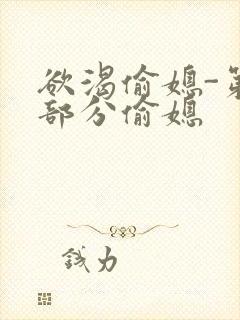 欲渴偷媳-第
部分偷媳
钱力